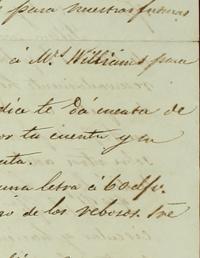 para nuestras futuras
á Mrs. Williams para
dia te dá cuenta de
or tu cuenta y en
uta.
una letra á 60 d/v.
ro de los rebosos. Tre